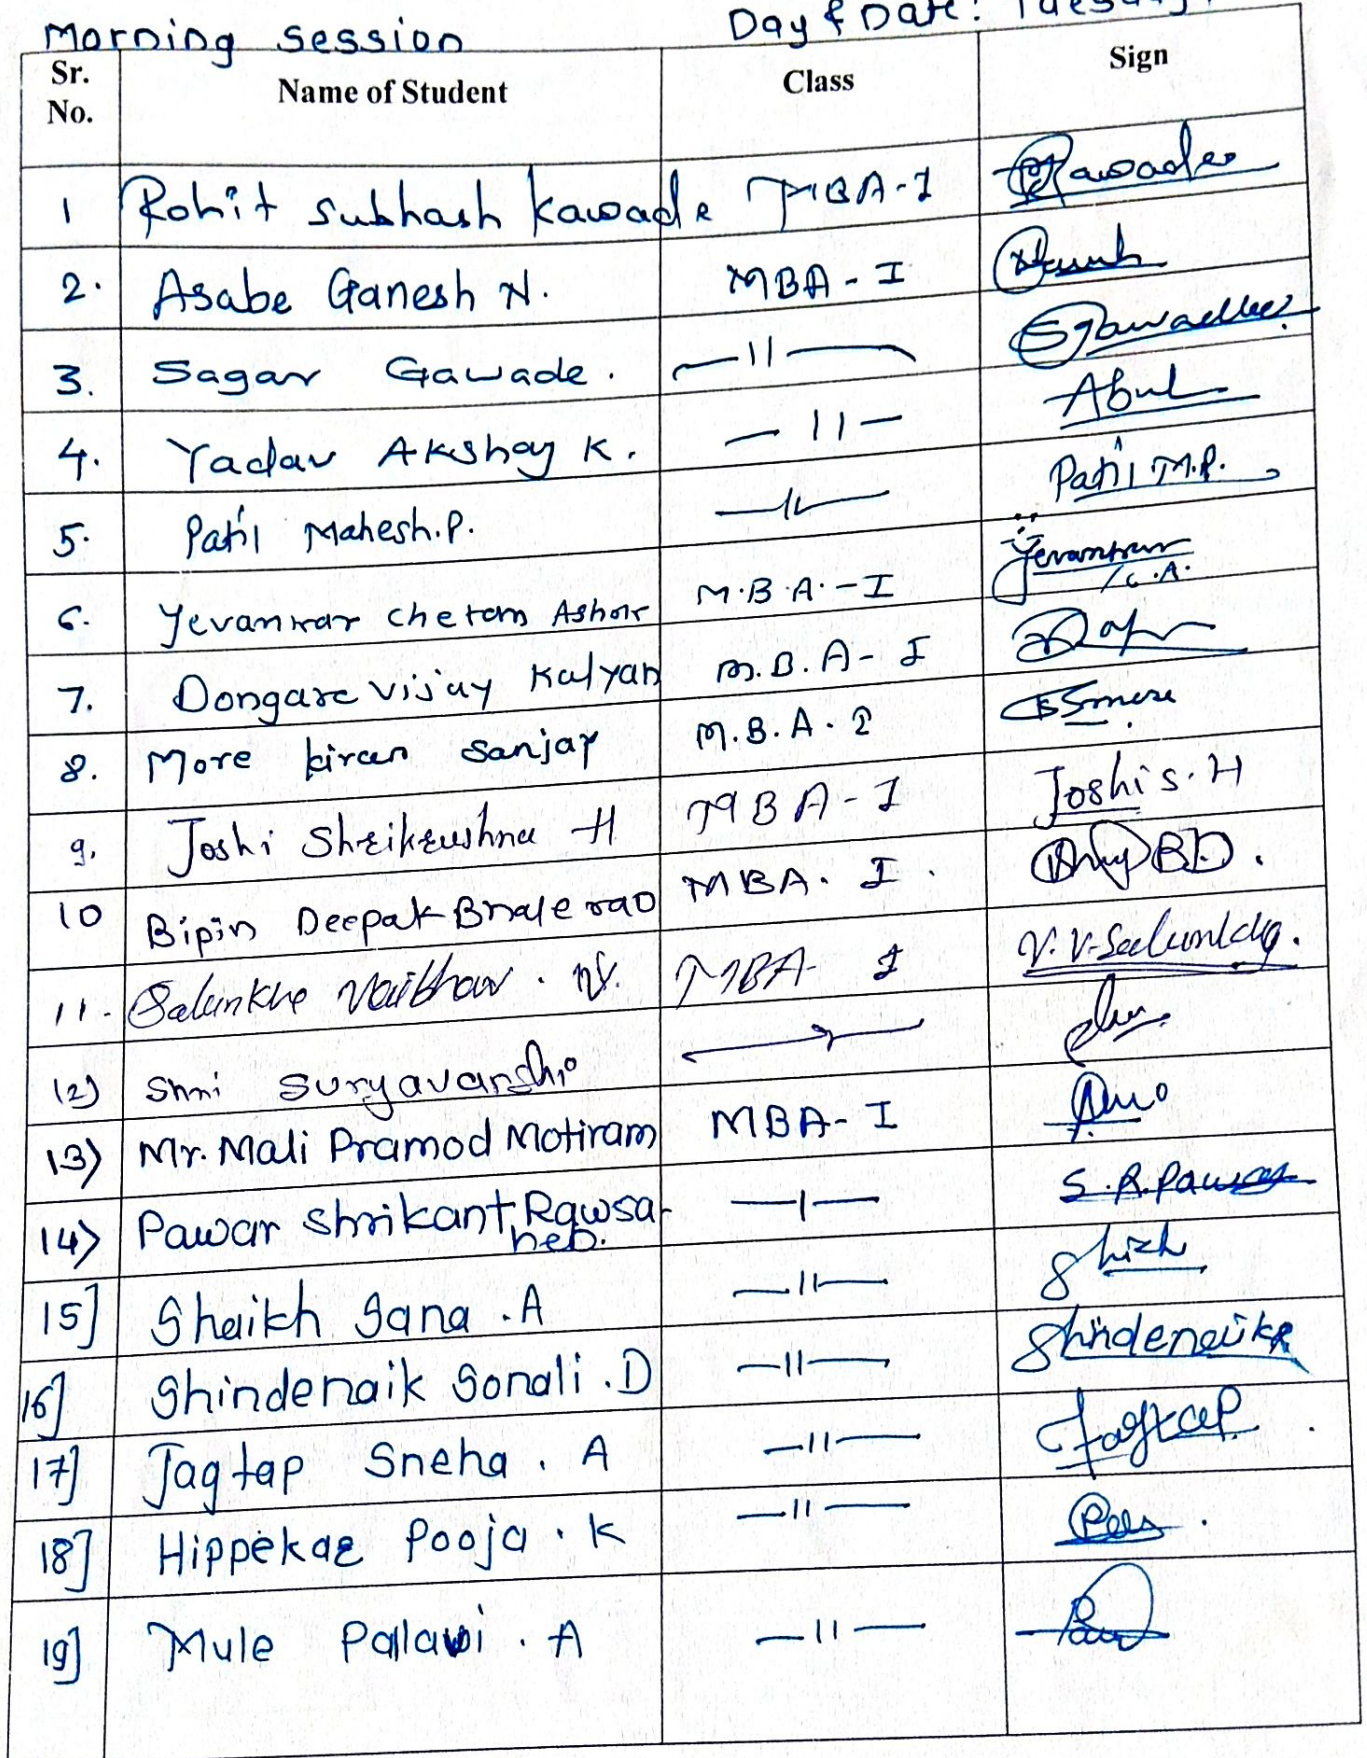 Morning Session Day & Date: Tuesday
Sr. No. Name of Student Class Sign
1 Rohit Subhash Kawade MBA-I Kawade
2. Asabe Ganesh N. MBA-I
3. Sagar Gawade. —11— SGawade
4. Yadav Akshay K. —11—
5. Patil Mahesh.P. —11— Patil M.P.
6. Yevanwar Chetan Ashok M.B.A.-I Yevanwar C.A.
7. Dongare Vijay Kalyan M.B.A-I
8. More kiran Sanjay M.B.A.I
9. Joshi Shrikrushna H MBA-I Joshi S.H
10 Bipin Deepak Bhalerao MBA. I. B.D.
11. Salunkhe Vaibhav. V. MBA- I V.V.Salunkhe.
12) Shri Suryavanshi
13) Mr. Mali Pramod Motiram MBA-I
14) Pawar Shrikant Rawsa-
heb. —1— S.R.Pawar
15] Shaikh Sana.A —11— Shikh
16] Shindenaik Sonali.D —11— Shindenaik
17] Jagtap Sneha. A —11— Jagtap
18] Hippekar Pooja. K —11—
19] Mule Pallavi. A —11—